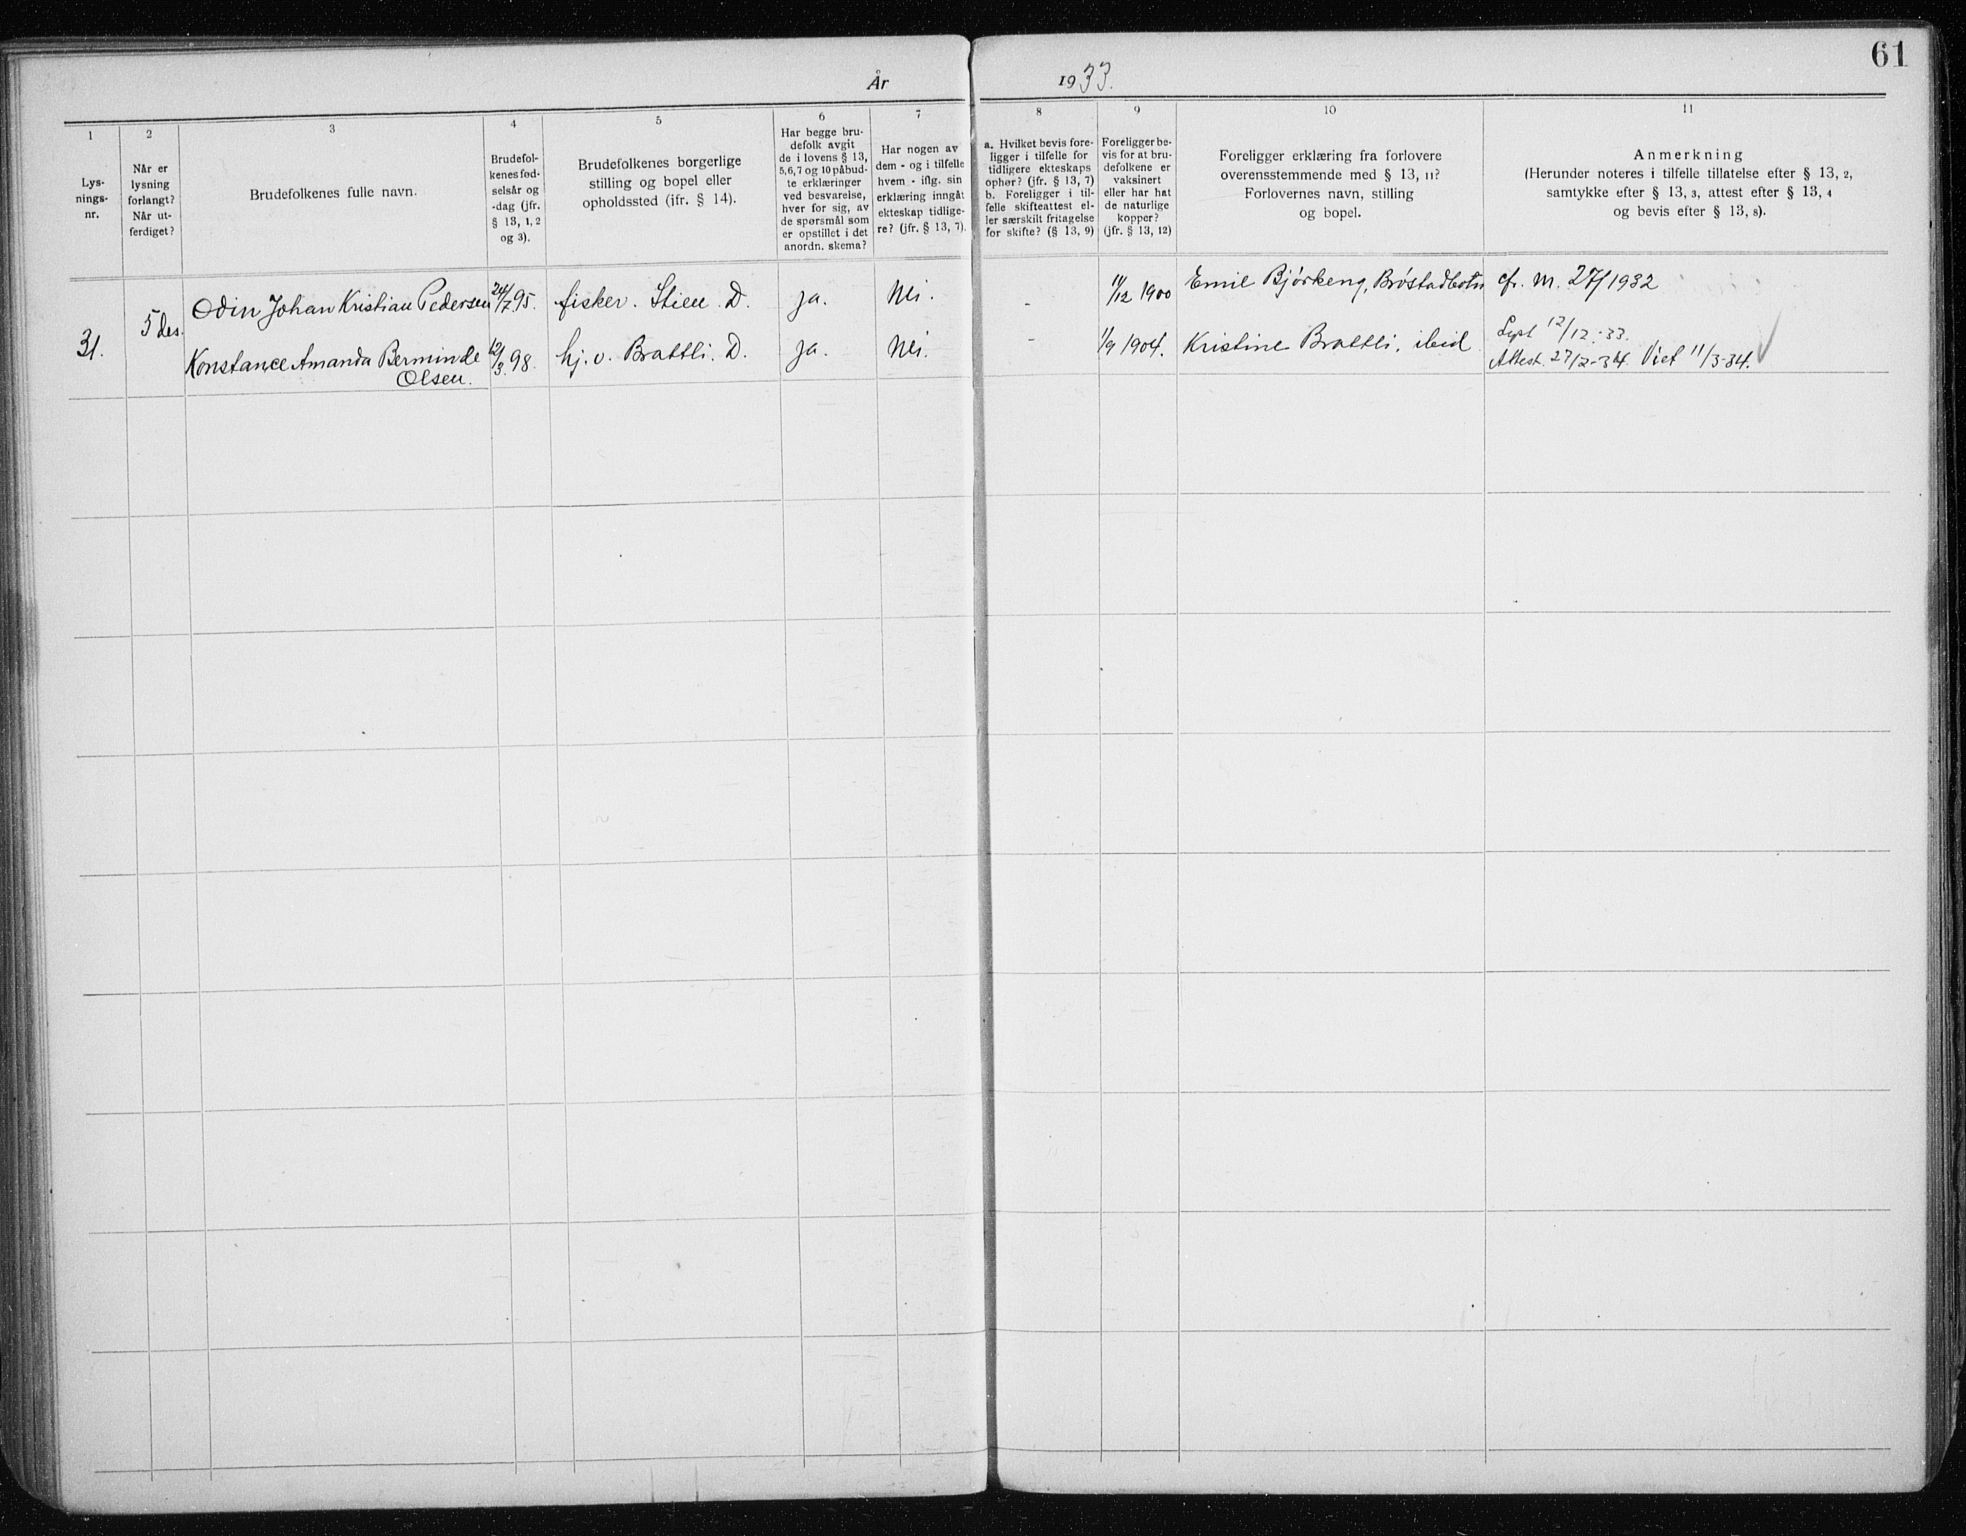 61
År 1933.
1 2 3 4 5 6 7 8 9 10 11
Lys-
nings-
nr.
Når er
lysning
forlangt?
Når ut-
ferdiget?
Brudefolkenes fulle navn.
Brudefol-
kenes fød-
selsår og
-dag (jfr.
§ 13, 1, 2
og 3).
Brudefolkenes borgerlige
stilling og bopel eller
opholdssted (jfr. § 14).
Har begge bru-
defolk avgit
de i lovens § 13,
5,6,7 og 10 påbud-
te erklæringer
ved besvarelse,
hver for sig, av
de spørsmål som
er opstillet i det
anordn. skema?
Har nogen av
dem - og i tilfelle
hvem - iflg. sin
erklæring inngåt
ekteskap tidlige-
re? (jfr. § 13, 7).
a. Hvilket bevis fore-
ligger i tilfelle for
tidligere ekteskaps
ophør? (jfr. § 13, 7)
b. Foreligger i til-
felle skifteattest el-
ler særskilt fritagelse
for skifte? (§ 13, 9)
Foreligger be-
vis for at bru-
defolkene er
vaksinert
eller har hat
de naturlige
kopper?
(jfr. § 13, 12)
Foreligger erklæring fra forlovere
overensstemmende med § 13, 11?
Forlovernes navn, stilling
og bopel.
Anmerkning
(Herunder noteres i tilfelle tillatelse efter § 13, 2,
samtykke efter § 13, 3, attest efter § 13, 4
og bevis efter § 13, 8).
31. 5 des.
Odin Johan Kristian Pedersen 24/7 95. fisker. Stien. D. ja. Nei. - 11/12 1900 Emil Bjørkeng, Brøstadbotn cfr. M. 27/1932
Konstance Amanda Berminde 12/3. 98. hj. v. Brattli. D. ja. Nei. - 11/9 1904. Kristine Brattli, ibid Lyst 12/12-33.
Olsen. Attest. 27/2-34. Viet 11/3-34. ✓